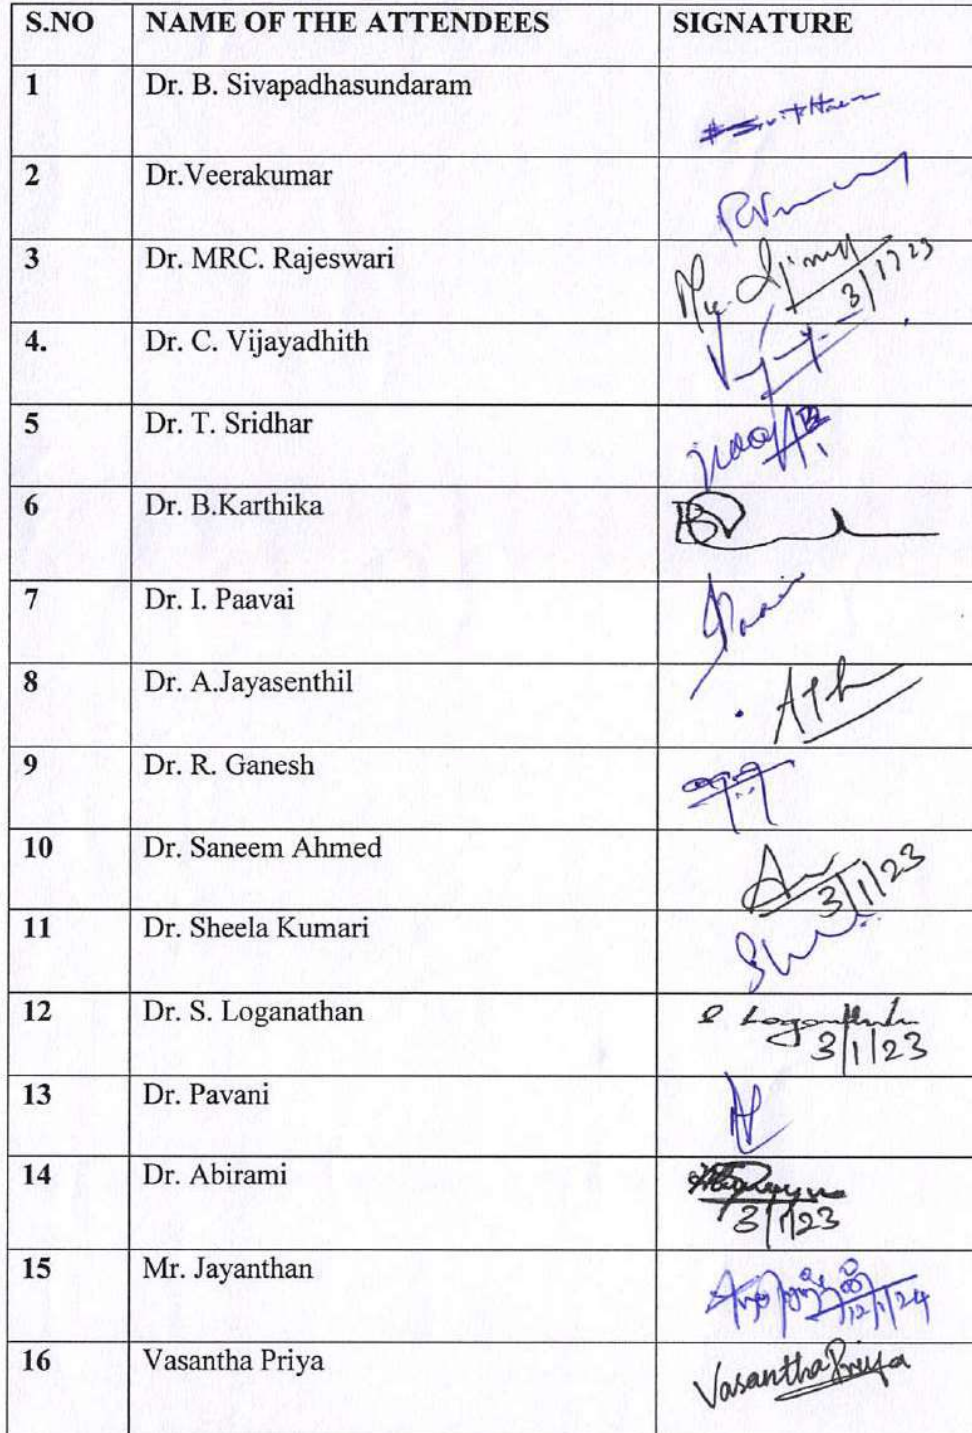 S.NO NAME OF THE ATTENDEES SIGNATURE
1 Dr. B. Sivapadhasundaram
2 Dr.Veerakumar
3 Dr. MRC. Rajeswari 3/1/23
4. Dr. C. Vijayadhith
5 Dr. T. Sridhar
6 Dr. B.Karthika
7 Dr. I. Paavai
8 Dr. A.Jayasenthil
9 Dr. R. Ganesh
10 Dr. Saneem Ahmed
3/1/23
11 Dr. Sheela Kumari
12 Dr. S. Loganathan
3/1/23
13 Dr. Pavani
14 Dr. Abirami
3/1/23
15 Mr. Jayanthan
12/1/24
16 Vasantha Priya Vasantha Priya